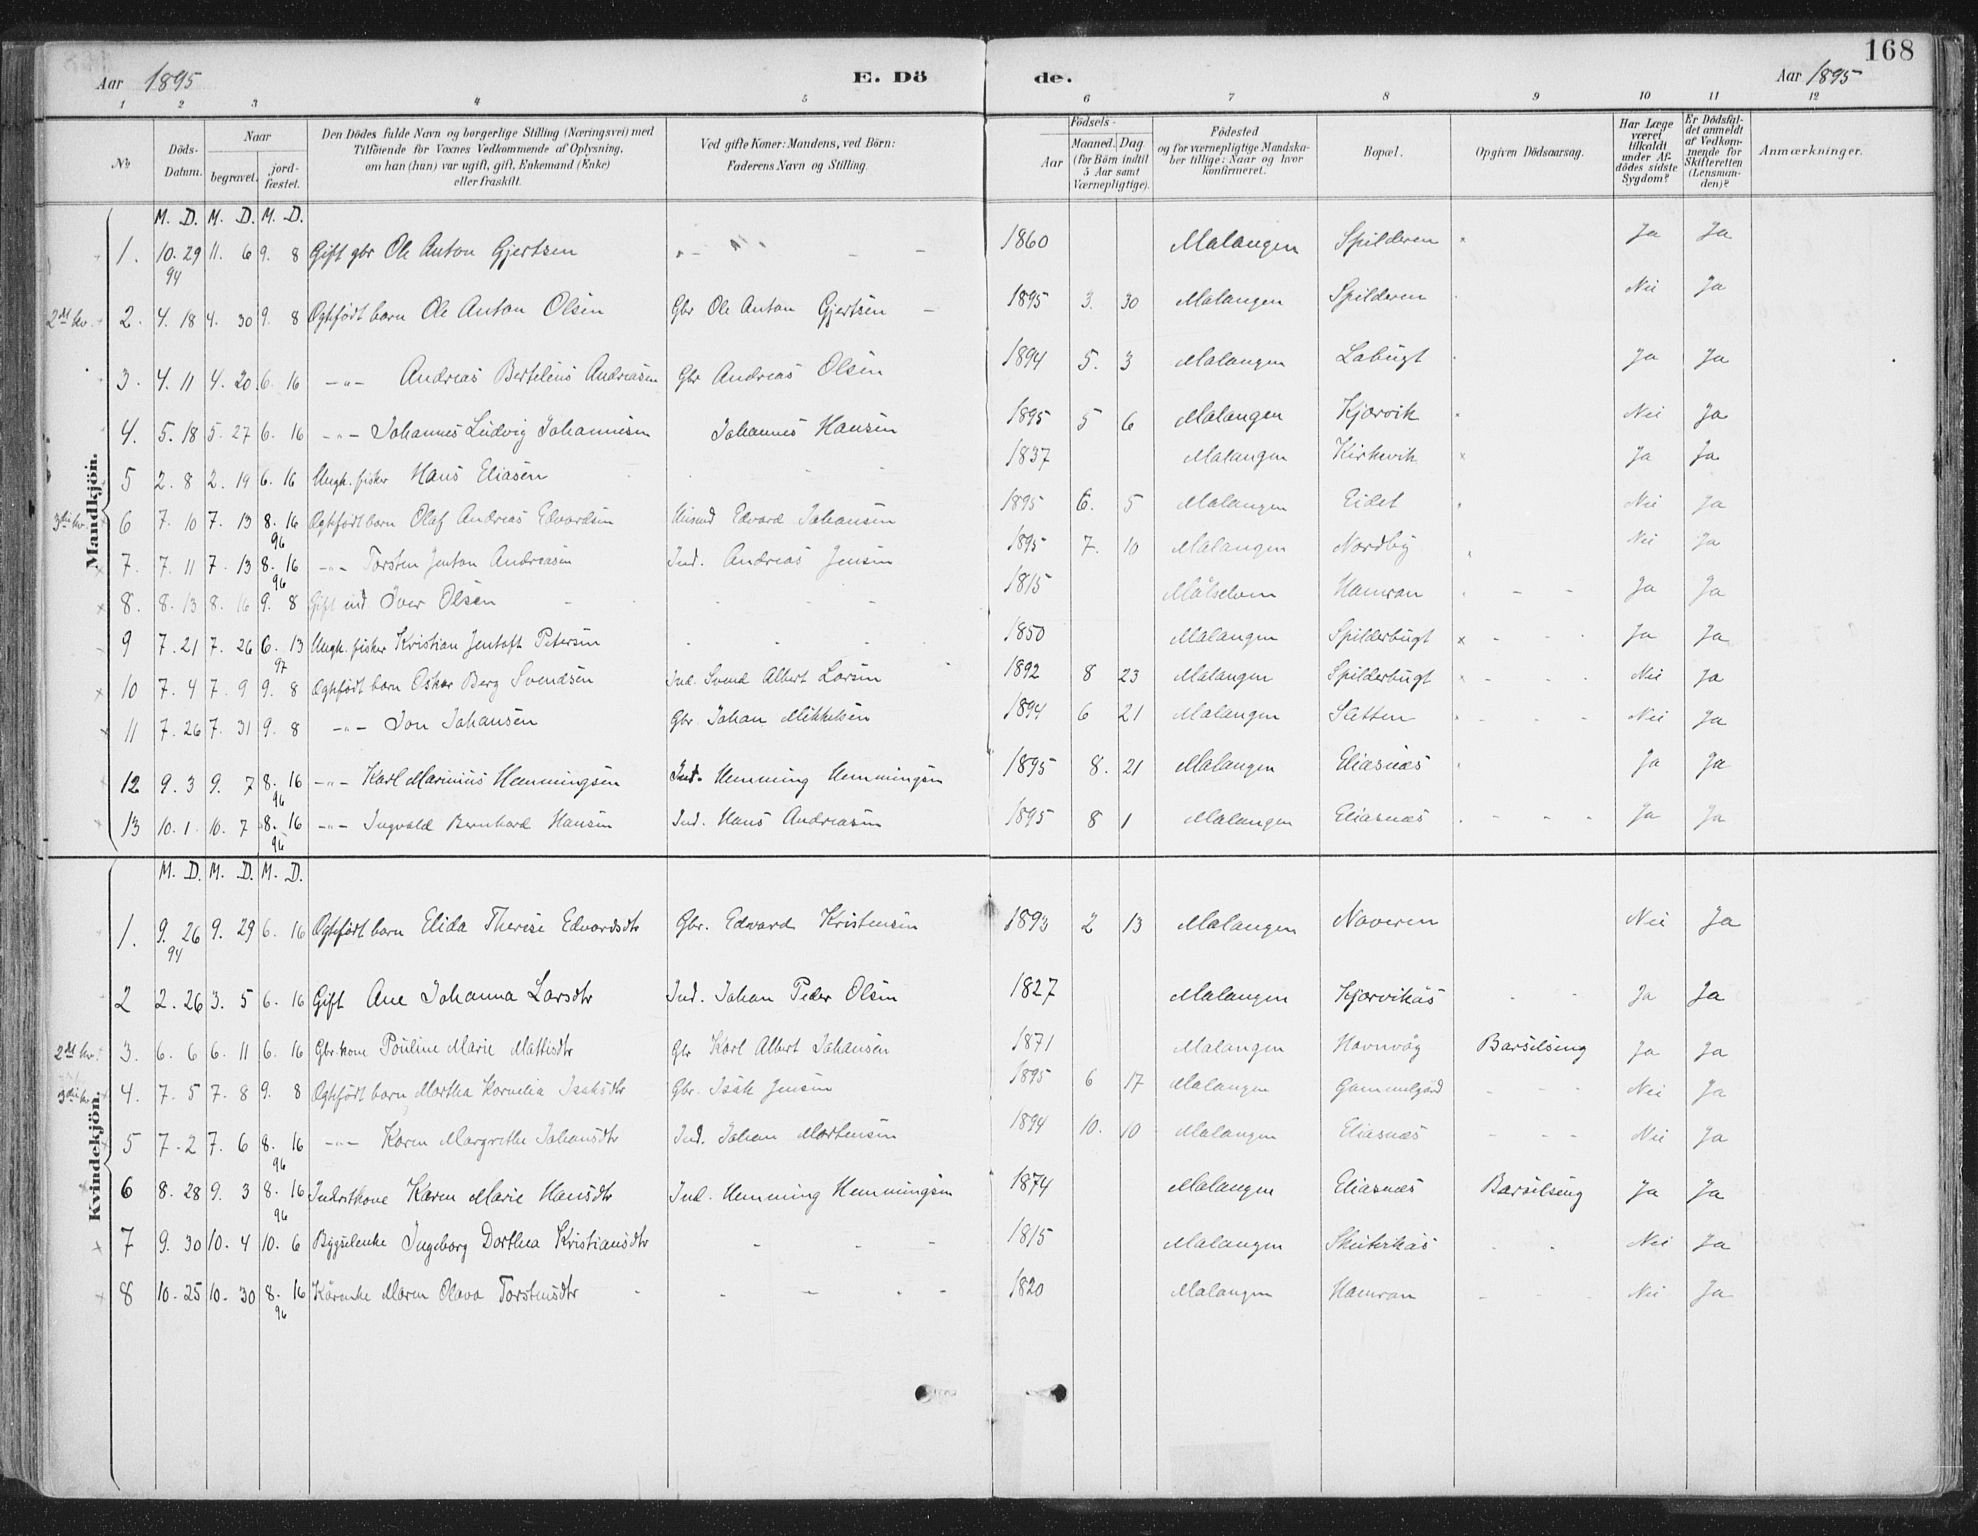 168
Aar 1895 E. Dö de. Aar 1895
1 2 3 4 5 6 7 8 9 10 11 12
No. Döds-Datum. Naar begravet. jordfæstet. Den Dödes fulde Navn og borgerlige Stilling (Næringsvei) med Tilföiende for Voxnes Vedkommende af Oplysning, om han (hun) var ugift, gift, Enkemand (Enke) eller fraskilt. Ved gifte Koner: Mandens, ved Börn: Faderens Navn og Stilling. Födsels- Aar Maaned. Dag. (for Börn indtil 5 Aar samt Værnepligtige). Födested og for værnepligtige Mandskaber tillige: Naar og hvor konfirmeret. Bopæl. Opgiven Dödsaarsag. Har Læge været tilkaldt under Afdödes sidste Sygdom? Er Dödsfaldet anmeldt af Vedkommende for Skifteretten (Lensmanden)? Anmærkninger.
Mandkjön.
M. D. M. D. M. D.
1. 10. 29 94 11. 6 9. 8 Gift gbr Ole Anton Gjertsen 1860 Malangen Spilderen Ja Ja
2det kv. 2. 4. 18 4. 30 9. 8 Ogtefödt barn Ole Anton Olsen Gbr Ole Anton Gjertsen 1895 3. 30 Malangen Spilderen Nei Ja
3. 4. 11 4. 20 6. 16 -"- Andreas Bertelius Andreasen Gbr Andreas Olsen 1894 5. 3 Malangen Labugt Ja Ja
4. 5. 18 5. 27 6. 16 -"- Johannes Ludvig Johannesen Johannes Hansen 1895 5 6 Malangen Kjærvik Nei Ja
5 2. 8 2. 19 6. 16 Ungk. fisker Hans Eliasen 1837 Malangen Kirkevik Ja Ja
3die kv. 6 7. 10 7. 13 8. 16 96 Ogtefödt barn Olaf Andreas Edvardsen Edvard Johansen 1895 6. 5 Malangen Eidet Nei Ja
7. 7. 11 7. 13 8. 16 96 -"- Torsten Jentan Andreasen Ind. Andreas Jensen 1895 7. 10 Malangen Nordby Nei Ja
8. 8. 13 8. 16 9. 8 Gift ind Iver Olsen 1815 Målselven Hamran Ja Ja
9 7. 21 7. 26 6. 13 97 Ungk. fisker Kristian Jentoft Petersen 1850 Malangen Spilderbugt Ja Ja
10 7. 4 7. 9 9. 8 Ogtefödt barn Oskar Berg Svendsen Ind. Svend Albert Larsen 1892 8 23 Malangen Spilderbugt Nei Ja
11 7. 26 7. 31 9. 8 -"- Jon Johansen Gbr. Johan Mikkelsen 1894 6 21 Malangen Sletten Nei Ja
12 9. 3 9. 7 8. 16 96 -"- Karl Marinius Hemmingsen Ind. Hemming Hemmingsen 1895 8. 21 Malangen Eliasnæs Ja Ja
13 10. 1 10. 7 8. 16 96 -"- Ingvald Bernhard Hansen Ind. Hans Andreasen 1895 8 1 Malangen Eliasnæs Ja Ja
Kvindekjön.
M. D. M. D. M. D.
1. 9. 26 94 9. 29 6. 16 Ogtefödt barn Elida Therese Edvardsdtr Gbr. Edvard Kristensen 1893 2 13 Malangen Naveren Nei Ja
2 2. 26 3. 5 6. 16 Gift Ane Johanna Larsdtr Ind. Johan Peder Olsen 1827 Malangen Kjærvikås Ja Ja
2det kv. 3. 6. 6 6. 11 6. 16 Gbr. kone Pauline Marie Mattisdtr Gbr Karl Albert Johansen 1871 Malangen Havnvåg Barselseng Ja Ja
3die kv. 4. 7. 5 7. 8 9. 8 Ogtefödt barn Martha Kornelia Isaksdtr Gbr. Isak Jensen 1895 6 17 Malangen Gammelgård Nei Ja
5 7. 2 7. 6 8. 16 96 -"- Karen Margrethe Johansdtr Ind. Johan Mortensen 1894 10. 10 Malangen Eliasnæs Nei Ja
6 8. 28 9. 3 8. 16 96 Indrstkone Karen Marie Hansdtr Ind. Hemming Hemmingsen 1874 Malangen Eliasnæs Barselseng Ja Ja
7 9. 30 10. 4 10. 6 Bygselenke Ingeborg Dorthea Kristiansdtr 1815 Malangen Skutvikås Nei Ja
8 10. 25 10. 30 8. 16 96 Kårenke Maren Olava Torstensdtr 1820 Malangen Hamran Nei Ja